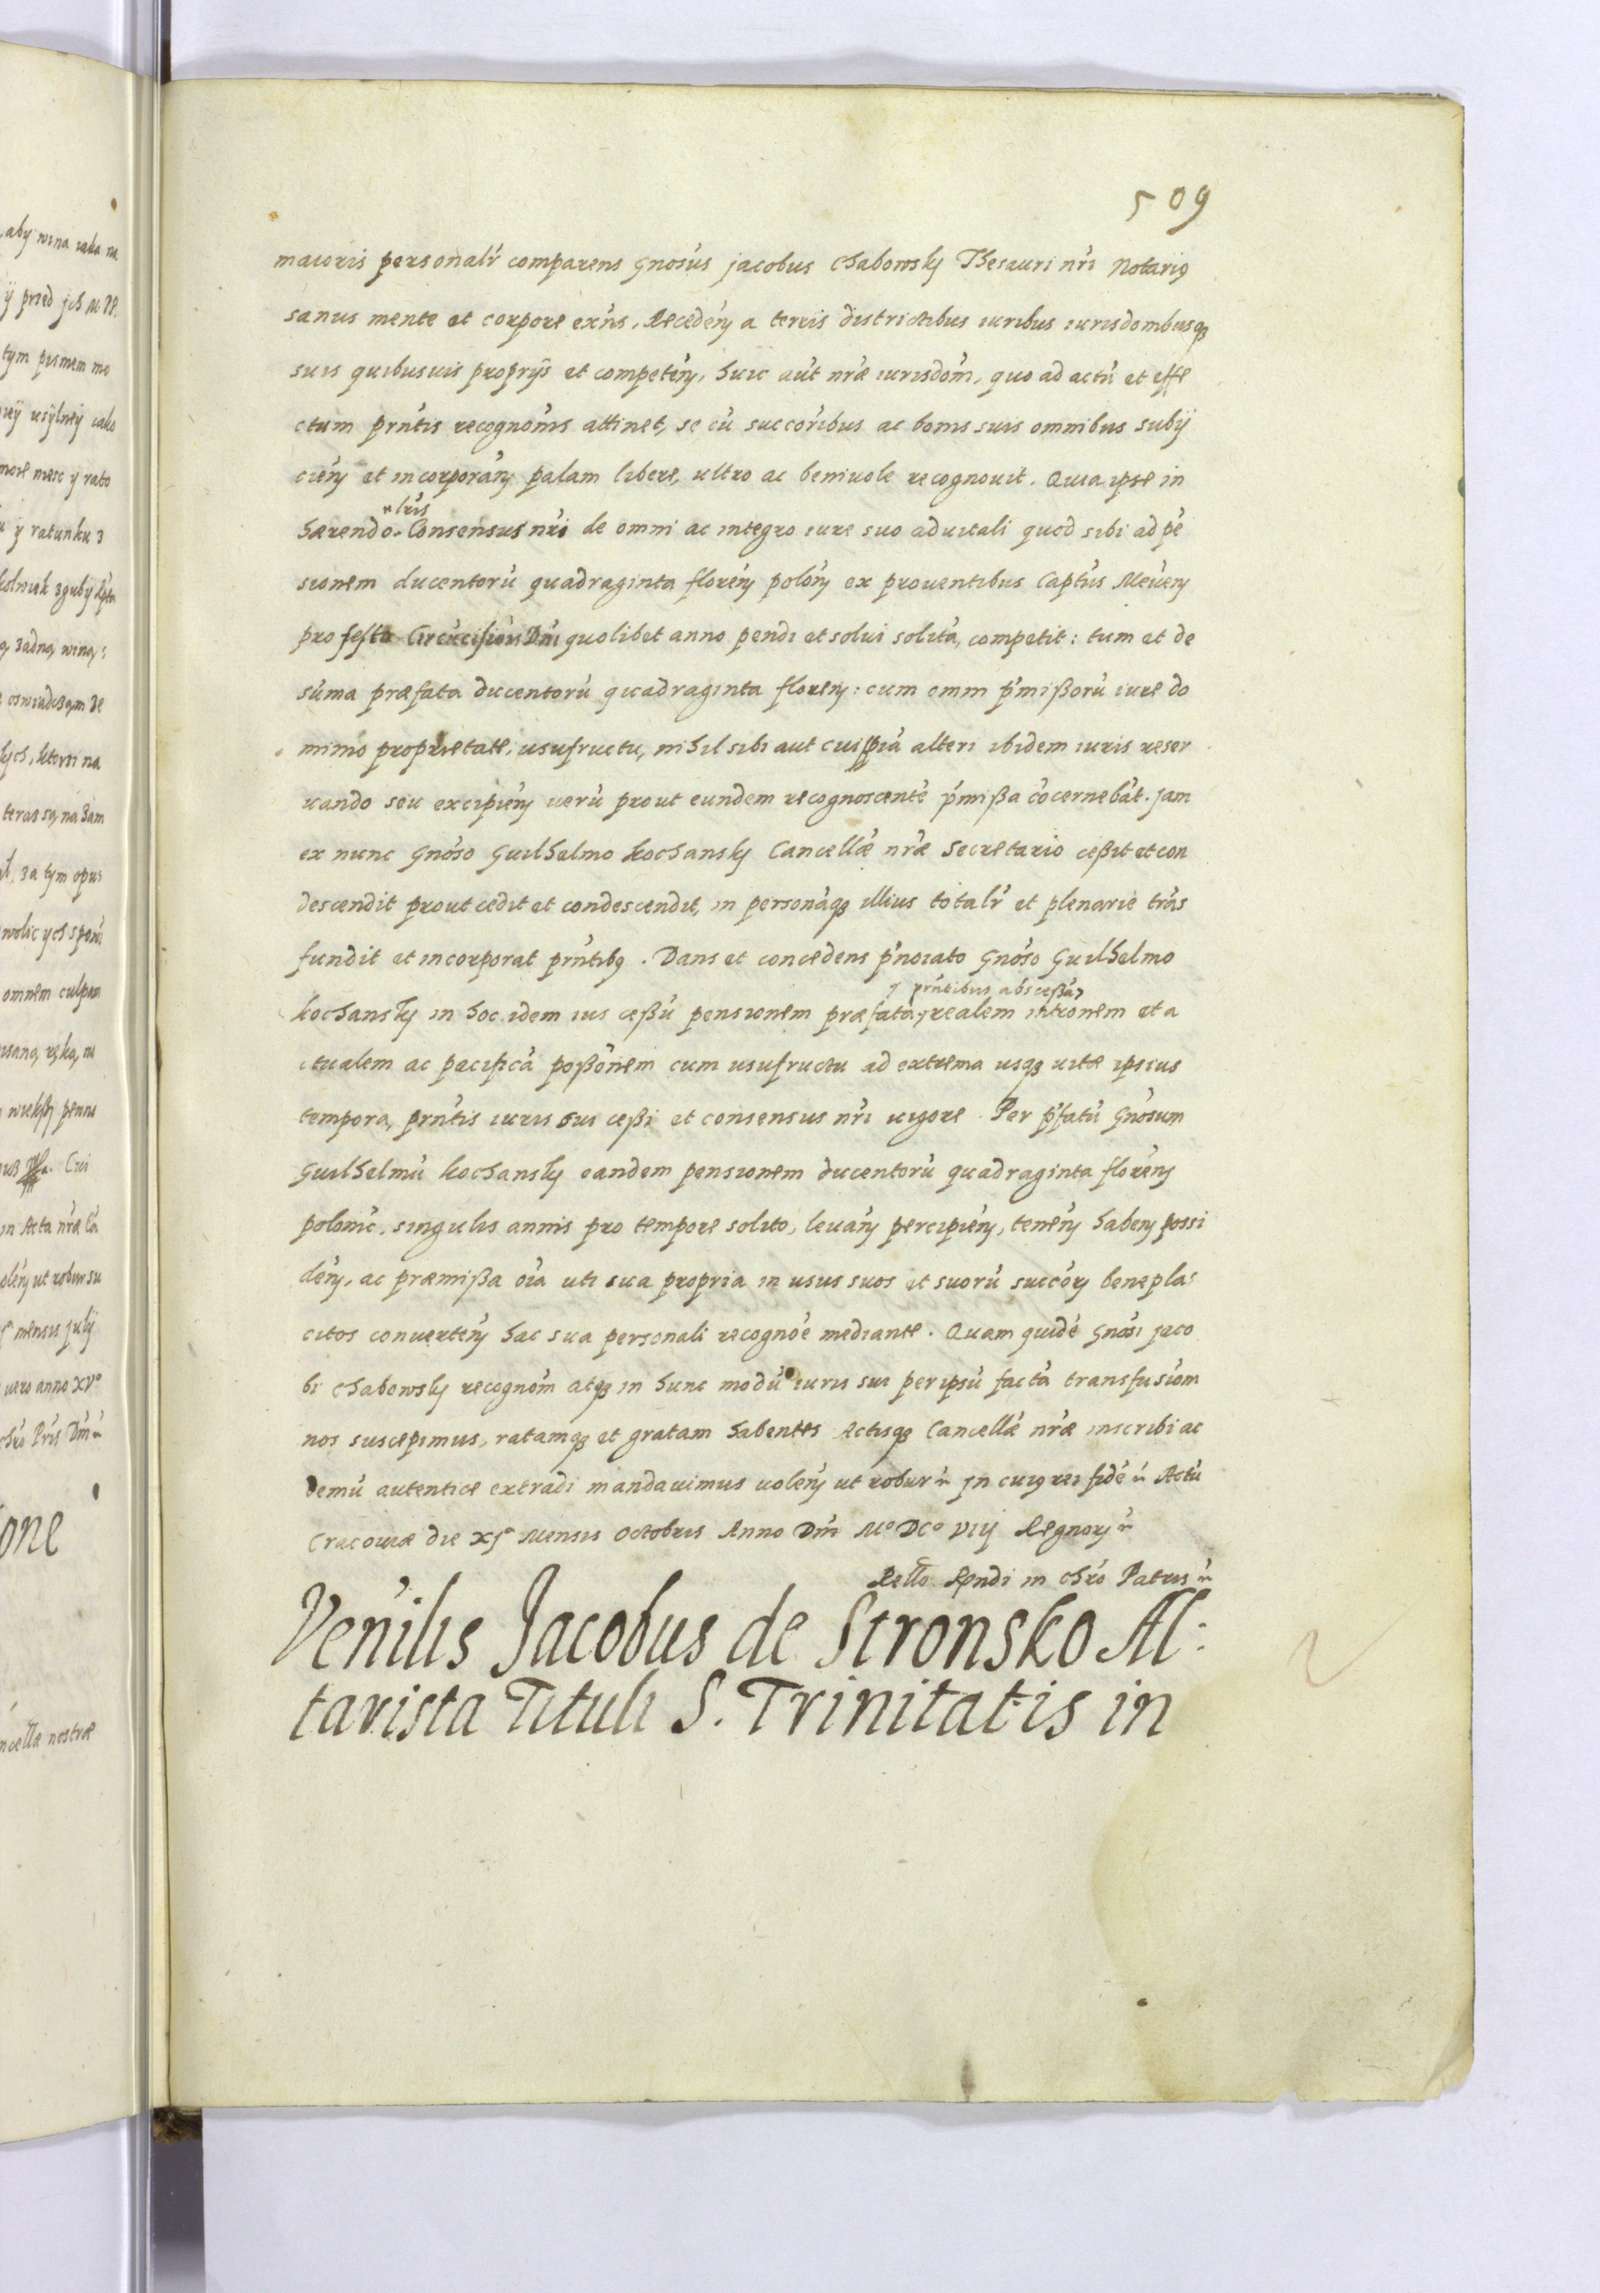 509
maioris personalr comparens Gnosus Jacobus Chabowsky Thesauri nri Notariq
sanus mente et corpore exns, Receden a terris districtibus iuribus iurisdombusq
suis quibusuis proprijs et competen, huic aut nrae iurisdom, quo ad actu et effe
ctum prntis recognoms attinet, se cu succoribus ac bonis suis omnibus subij
cien et incorporan palam libere, ultro ac beniuole recognouit. Quia ipse in
lris
haerendo Consensus nri de omni ac integro iure suo aduitali quod sibi ad pe
sionem ducentoru quadraginta floren polon ex prouentibus Captus Meuen
pro festo Circucisioni Dni quolibet anno pendi et solui solita, competit: tum et de
suma praefata ducentoru quadraginta floren: cum omni pmißoru iure do
minio proprietate, usufructu, nihil sibi aut cuispia alteri ibidem iuris reser
uando seu excipien ueru prout eundem recognoscente pmißa cocernebat. Jam
ex nunc Gnoso Guilhelmo Kochansky Cancellae nrae Secretario ceßit et con
descendit prout cedit et condescendit, in personaq illius totalr et plenarie tras
fundit et incorporat prntibq. Dans et concedens pnoiato Gnoso Guilhelmo
prntibus absceßa
Kochansky in hoc idem ius ceßu pensionem praefata, realem intronem et a
ctualem ac pacifica poßonem cum usufructu ad extrema usq uitae ipsius
tempora, prntis iuris sui ceßi et consensus nri uigore. Per pfatu Gnosum
Guilhelmu Kochansky eandem pensionem ducentoru quadraginta floren
polonic. singulis annis pro tempore solito, leuan percipien, tenen haben possi
den, ac praemißa oia uti sua propria in usus suos et suoru succor benepla:
citos conuerten hac sua personali recognoe mediante. Quam quide Gnosi Jaco
bi Chabowsky recognom atq in hunc modu iuris sui per ipsu facta transfusiom
nos suscepimus, ratamq et gratam habentes Actisq Cancella nrae inscribi ac
demu autentice extradi mandauimus uolen ut robur Jn cuiq rei fide Actu
Cracouiae die XI Mensis Octobris Anno Dni Mo DCo VIIJ Regnor
Rello Rndi in Chro Patris
Venilis Jacobus de Stronsko Al:
tarista Tituli S. Trinitatis in
aby wina iaka na
ij przed jch M PP.
tym pismem
omnem culpam
in Acta nrae Ca
mensis july
uero anno XVo
one
ncella nostrae